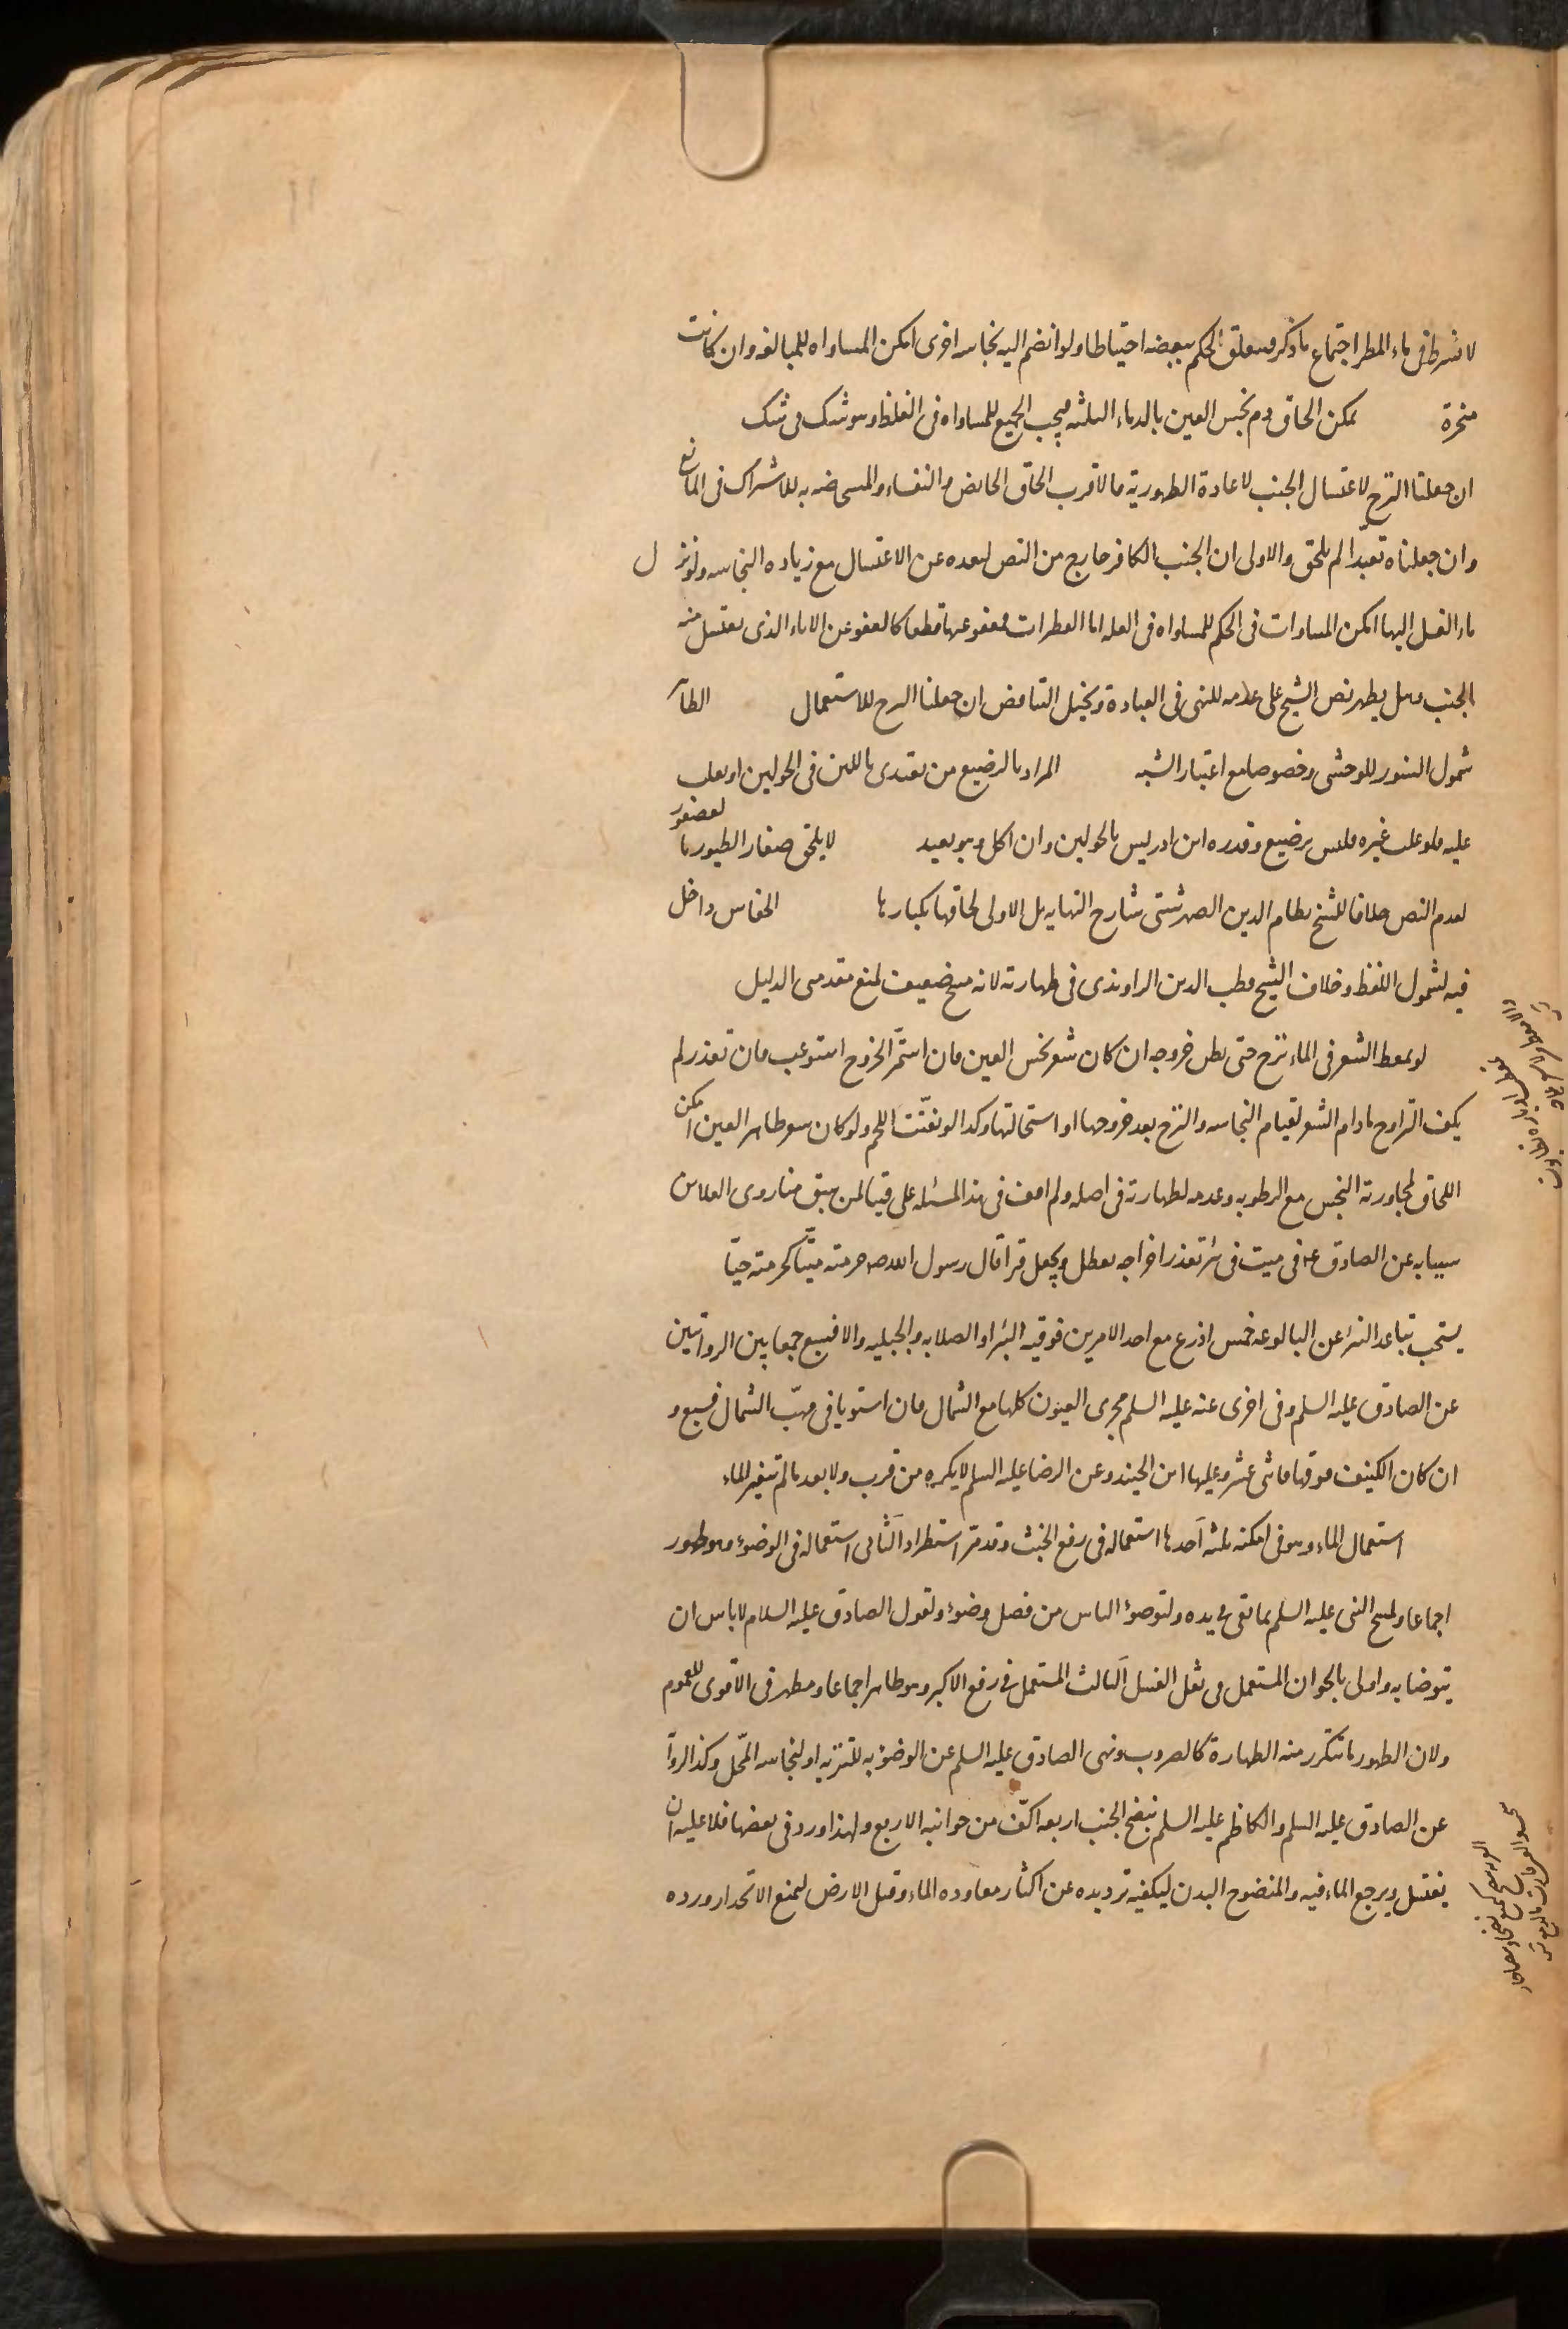 لا يشترط في ماء المطر اجتماع ما ذكر فيتعلق الحكم ببعضه احتياطا ولو انضم اليه نجاسه اخرى امكن المساواه للمبالغه وان كانت
منجرة يمكن الحاق دم نجس العين بالدماء الثلثه فيجب الجميع للمساواه في الغلظ وهو شك في شك
ان جعلنا النزح لاغتسال الجنب لاعادة الطهورية فالاقرب الحاق الحائض والنفساء والمستحاضه به للاشتراك في المانع
وان جعلناه تعبدا لم يلحق والاولى ان الجنب الكافر خارج من النص لبعده عن الاغتسال مع زياده النجاسه ولو نزل
ماء الغسل اليها امكن المساوات في الحكم للمساواه في العله اما القطرات فمعفو عنها قطعا كالعفو عن الاناء الذي يغتسل منه
الجنب وهل يطهر نص الشيخ على عدمه للنهي في العبادة ويخيل التناقض ان جعلنا النزح للاستعمال الظاهر
شمول السنور للوحشي وخصوصا مع اعتبار الشبه المراد بالرضيع من يغتذى باللبن في الحولين او يغلب
عليه فلو غلب غيره فليس برضيع وقدره ابن ادريس بالحولين وان اكل وهو بعيد لا يلحق صغار الطيور بالعصفور
لعدم النص خلافا للشيخ نظام الدين الصهرشتى شارح النهايه بل الاولى لحاقها بكبارها الخفاش داخل
فيه لشمول اللفظ وخلاف الشيخ قطب الدين الراوندى في طهارته لانه مسخ ضعيف لمنع مقدمى الدليل
لو تمعط الشعر في الماء نزح حتى يظن خروجه ان كان شعر نجس العين فان استمر الخروج استوعب فان تعذر لم
يكف التراوح ما دام الشعر لقيام النجاسه والنزح بعد خروجها او استحالتها وكذا لو تفتت اللحم ولو كان شعر طاهر العين امكن
اللحاق لمجاورته النجس مع الرطوبه وعدمه لطهارته في اصله ولم اقف في هذه المسئله على فتيا لمن سبق منا روى العلا بن
سيابه عن الصادق ع في ميت في بئر تعذر اخراجه تعطل ويجعل قبرا قال رسول الله ص حرمته ميتا كحرمته حيا
يستحب تباعد البئر عن البالوعه خمس اذرع مع احد الامرين فوقيه البئر او الصلابه والجبليه والا فسبع جمعا بين الروايتين
عن الصادق عليه السلم وفي اخرى عنه عليه السلم مجرى العيون كلها مع الشمال فان استويا في مهب الشمال فسبع و
ان كان الكنيف فوقها فاثنى عشر وعليها ابن الجنيد وعن الرضا عليه السلم لا يكره من قرب ولا بعد ما لم تتغير الماء
استعمال الماء وهو في امكنه ثلثه آحدها استعماله في رفع الخبث وقد مر استطرادا الثاني استعماله في الوضوء وهو طهور
اجماعا ولمسح النبي عليه السلم بما بقى في يده ولتوضؤ الناس من فضل وضوءه ولقول الصادق عليه السلام لا باس ان
يتوضا به واولى بالجواز المستعمل في نفل الغسل الثالث المستعمل في رفع الاكبر وهو طاهر اجماعا ومطهر في الاقوى للعموم
ولان الطهور ما تتكرر منه الطهارة كالضروب ونهى الصادق عليه السلم عن الوضوء به للتنزيه او لنجاسه المحل وكذا الروا
عن الصادق عليه السلم والكاظم عليه السلم بنضح الجنب اربعه اكف من جوانبه الاربع ولهذا ورد في بعضها فلا عليه ان
يغتسل ويرجع الماء فيه والمنضوح البدن ليكفيه ترديده عن اكثار معاوده الماء وقيل الارض ليمنع الانحدار ورده